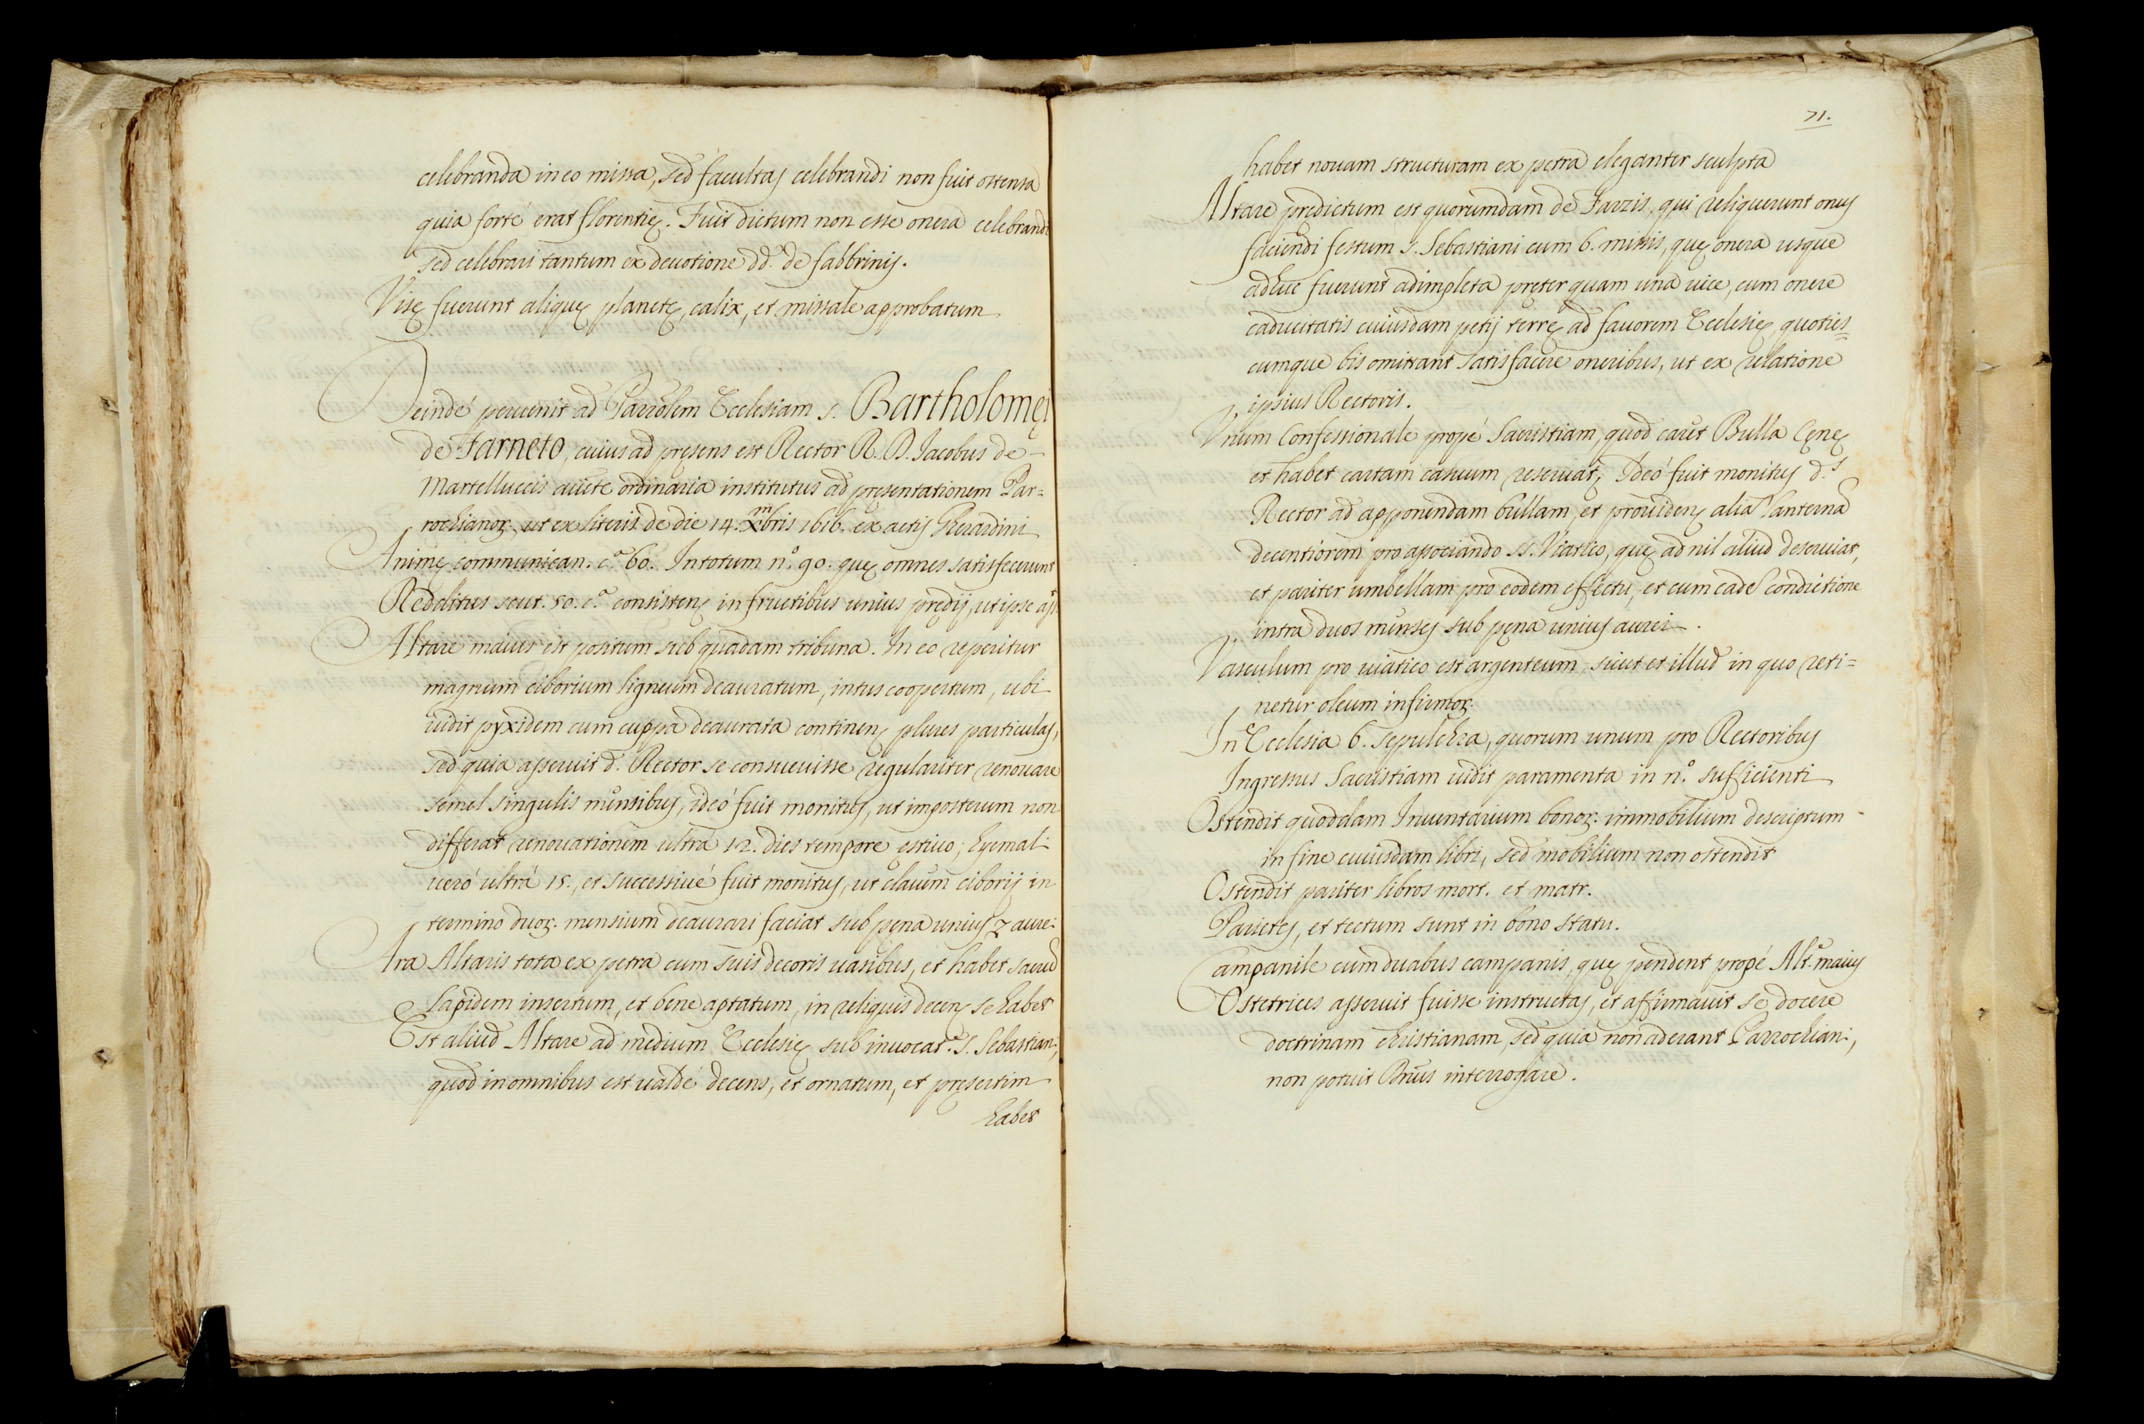 celebranda in eo missa, sed facultas celebrandi non fuit ostensa
quia forté erat florentię. Fuit dictum non esse onera celebrandi
sed celebrari tantum ex deuotione dd. de fabbrinis.
Visę fuerunt aliquę planetę, calix, et missale approbatum
Deindé peruenit ad Parrolem Ecclesiam s. Bartholomęi
de Farneto, cuius ad pręsens est Rector R. D. Iacobus de
Martelluccis aucte ordinaria institutus ad presentationem Par=
rochianoꝝ, ut ex literis de die 14. Xmbris 1616. ex actis Gherardini
Animę communican. c.ª 60. In totum n.º 90. quę omnes satisfecerunt
Redditus scut. 50. c.ª consistenṣ in fructibus unius prędij, ut ipse aſt
Altare maius est positum sub quadam tribuna. In eo reperitur
magnum ciborium ligneum deauratum, intus coopertum, ubi
uidit pyxidem cum cuppa deaurata continenṣ plures particulas,
sed quia asseruit d. Rector se consueuisse regulariter renouare
semel singulis mensibus, ideó fuit monitus, ut imposterum non
differat renouationem ultra 12. dies tempore ęstiuo, hyemali
ueró ultrá 15., et successiué fuit monitus, ut clauem ciborij in
termino duoꝝ. mensium deaurari faciat sub pęna unius z aurei
Ara Altaris tota ex petra cum suis decoris uasibus, et habet sacrum
lapidem insertum, et bene aptatum, in reliquis decenṣ se habet
Est aliud Altare ad medium Ecclesię sub inuocat.e s. Sebastiani,
quod in omnibus est ualdé decens, et ornatum, et pręsertim
habet
71.
habet nouam structuram ex petra eleganter sculpta
Altare prędictum est quorumdam de Farzis, qui reliquerunt onus
faciendi festum s. Sebastiani cum 6. missis, quę onera usque
adhuc fuerunt adimpleta pręter quam una uice, cum onere
caducitatis cuiusdam petij terrę ad fauorem Ecclesię, quoties=
cumque bis omittant satisfacere oneribus, ut ex relatione
ipsius Rectoris.
Unum Confessionale propé Sacristiam, quod caret Bulla Cęnę
et habet cartam casuum reseruat, Ideó fuit monitus d.s
Rector ad apponendam bullam, et prouidenṣ alia lanterna
decentiorem pro associando SS. Viatico, quę ad nil aliud deseruiat,
et pariter umbellam pro eodem effectu, et cum eadē condictione
intra duos menses sub pęna unius aurei.
Vasculum pro uiatico est argenteum, sicut et illud in quo reti=
netur oleum infirmoꝝ.
In Ecclesia 6. sepulchra, quorum unum pro Rectoribus
Ingressus Sacristiam uidit paramenta in n.º sufficienti
Ostendit quoddam Inuentarium bonoꝝ. immobilium descriptum
in fine cuiusdam libri, sed mobilium non ostendit
Ostendit pariter libros mort. et matr.
Parietes, et tectum sunt in bono statu.
Campanile cum duabus campanis, quę pendent propé Alt.e maius
Ostetrices asseruit fuisse instructas, et affirmauit se docere
doctrinam christianam, sed quia non aderant Parrochiani,
non potuit Brius interrogare.